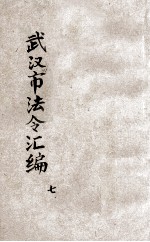 武汉市法令汇编
七